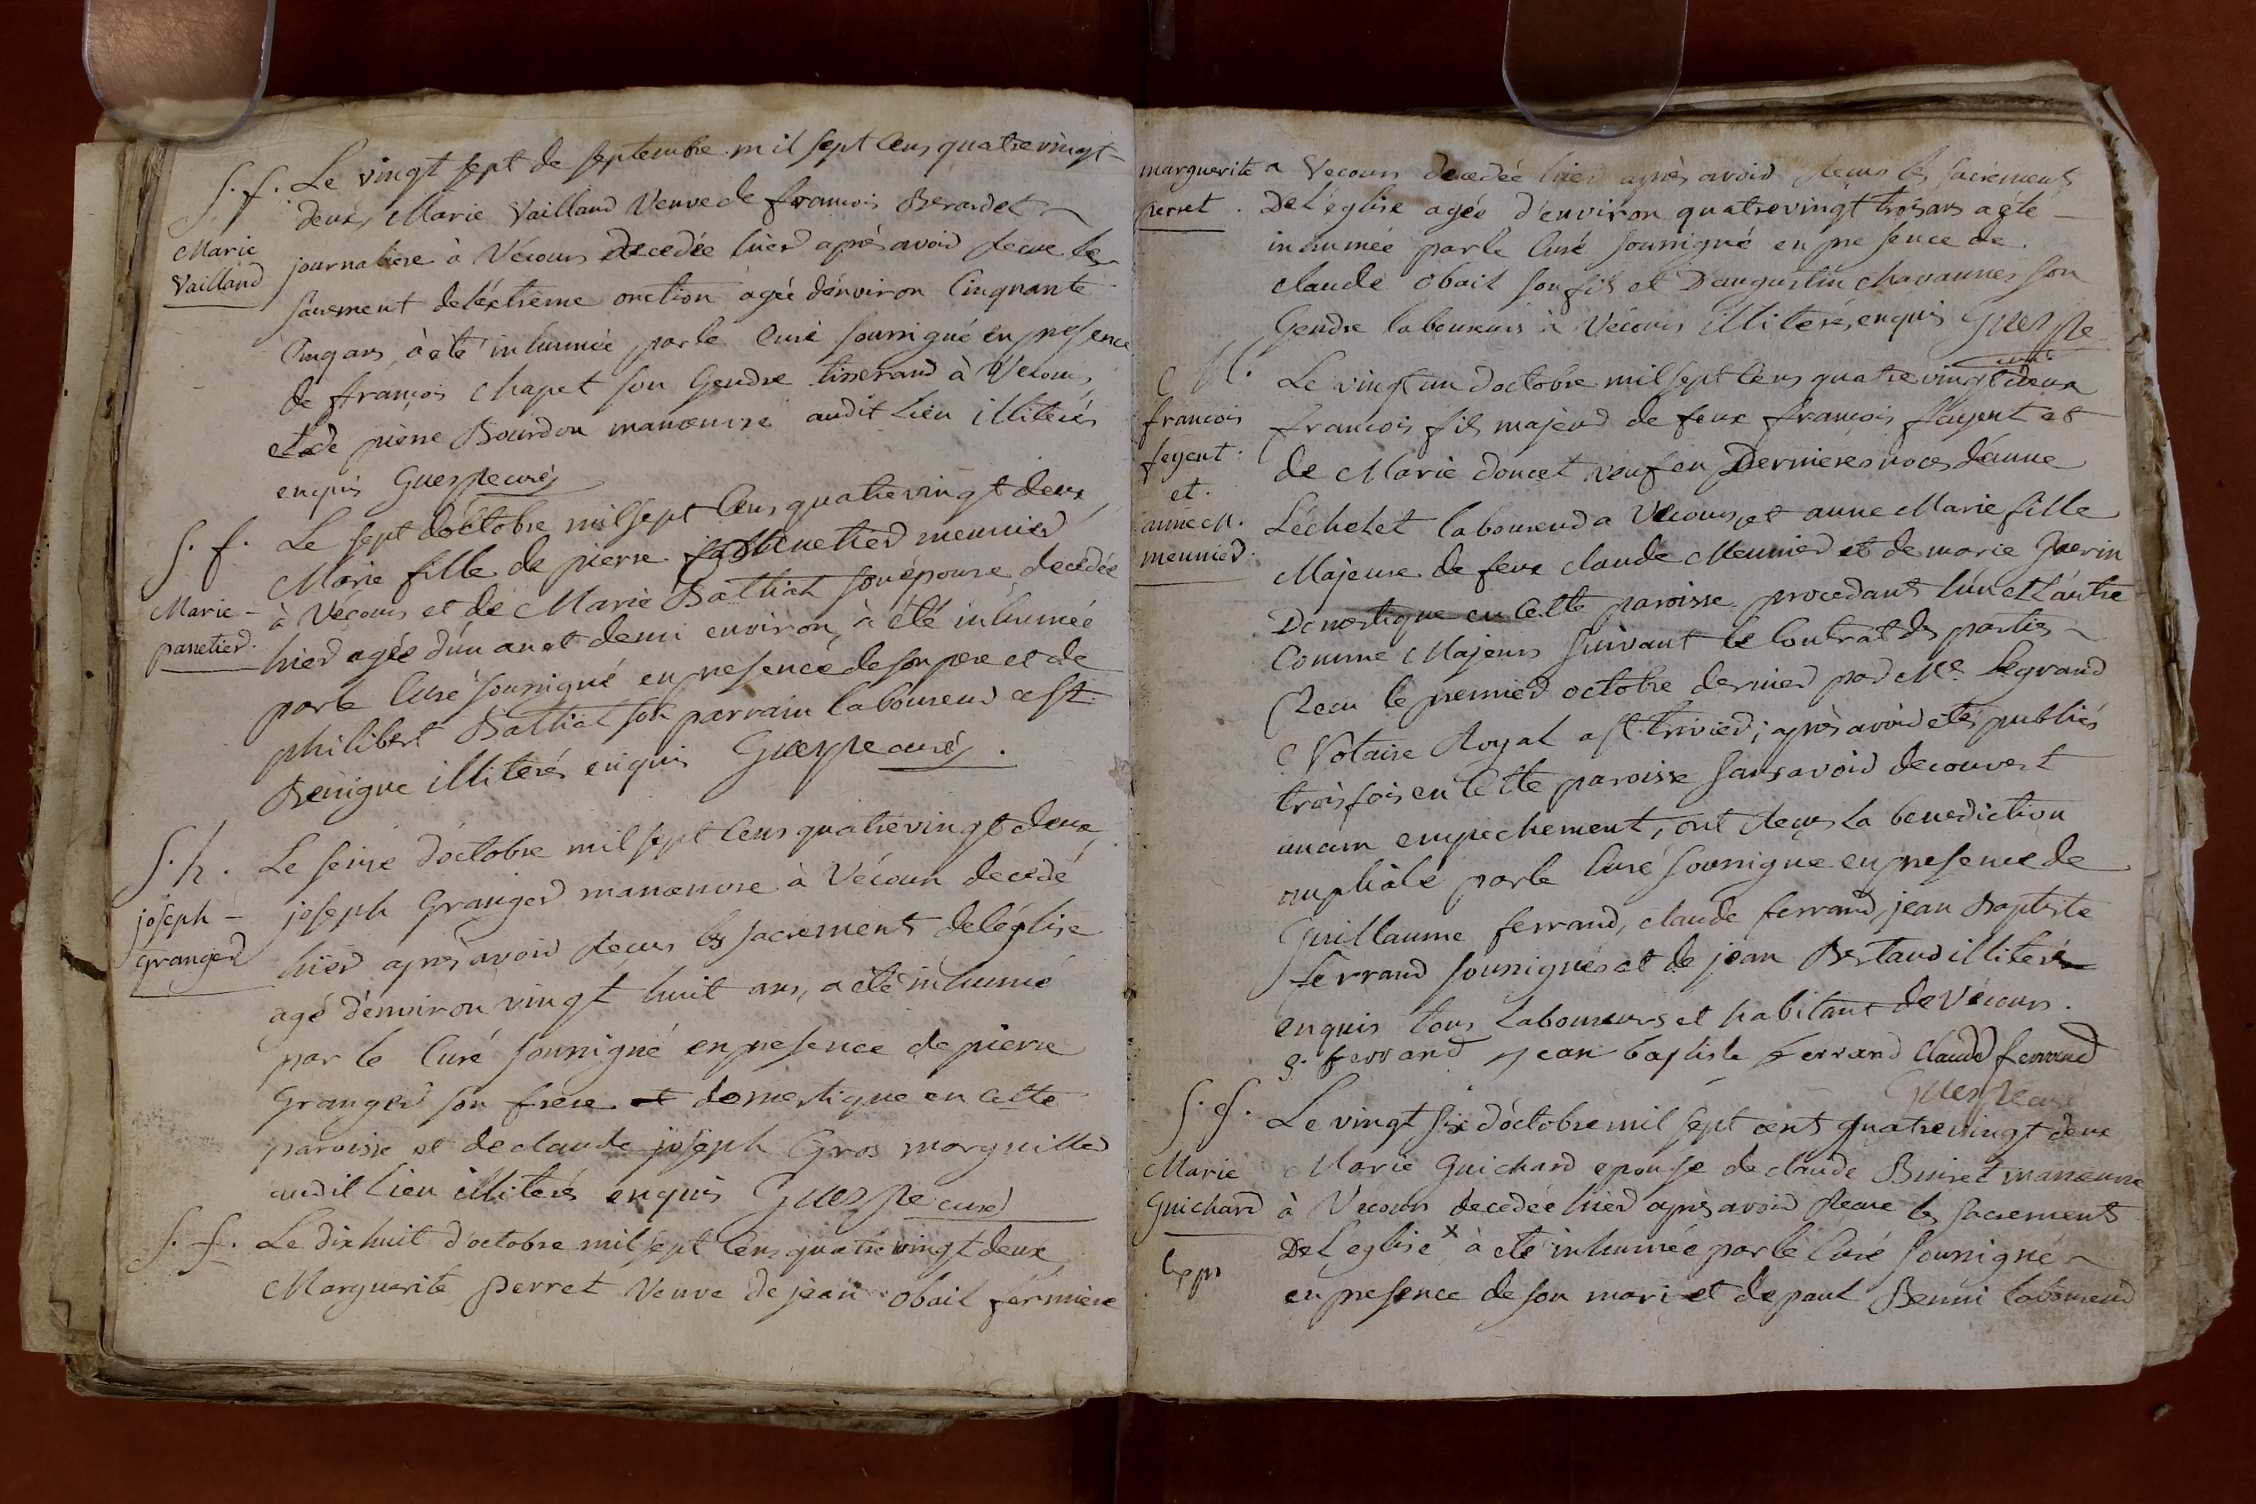 S. f. Le vingt sept de septembre mil sept cens quatre vingt
deux, Marie Vailland Veuve de francois Berardet
Marie
Vailland
journaliere à Vécours decedée hier après avoir recue le
sacrement de l'éxtrème onction agée d'énviron Cinquante
Cinq ans, à été inhumée par le Curé soussigné en presence
de françois Chapet son Gendre tisserand à Vecours,
et de pierre Bourdon manoeuvre audit Lieu illiterés
enquis Guespe curé
S. f. Le sept d'octobre mil sept Cens quatre vingt deux,
Marie fille de pierre panetier meunier
Marie
panetier.
à Vecours et de Marie Bathiat son épouse decedée
hier agée d'ún an et demi environ, à été inhumée
par le Curé soussigné en presence de son pere et de
philibert Bathiat son parrain laboureur a St
Benigne illiterés enquis Guespe curé.
S. h. Le seize d'octobre mil sept Cens quatre vingt deux,
joseph Granger manoeuvre à Vécour decedé
joseph
Granger
hier après avoir recus les sacrements de l'église
agé d'énviron vingt huit ans, a été inhumé
par le Curé soussigné en presence de pierre
Granger son frere et domestique en cette
paroisse et de claude joseph Gros marguiller
audit Lieu illiterés enquis Guespe curé
S. f. Le dix huit d'octobre mil sept Cens quatre vingt deux,
Marguerite perret Veuve de jean obail fermiere
marguerite
perret.
a Vecours decedée hier après avoir recus les sacrements
De L'église agée d'environ quatre vingt trois ans a été
inhumée par le Curé soussigné en presence de
claude obail son fils et D'augustin chavannes son
Gendre laboureurs à Vécours illiterés, enquis Guespe
curé
M. Le vingt un d'octobre mil sept Cens quatre vingt deux
francois
feyent.
et.
anne M.
meunier.
francois fils majeur de feux françois feyent et
de Marie doucet veuf en Dernieres noces d'ánne
Léchelet laboureur a Vécours, et anne Marie fille
Majeure de feux claude Meunier et de marie Guerin
Domestique en Cette paroisse, procedants l'ún et l'áutre
Comme Majeurs suivant le Contrat des parties
Recu le premier octobre dernier par Me. Legrand
Notaire Royal a St. trivier; après avoir etés publiés
trois fois en Cette paroisse sans avoir decouvert
aucun empechement, ont recus la benediction
nuptiale par le Curé soussigné en presence de
Guillaume ferrand, claude ferrand, jean Baptiste
ferrand soussignés et de jean Bertaud illiterés
enquis tous Laboureurs et habitant de Vécours.
g. ferrand jean baptiste ferrand Claude ferrand
Guespe curé
S. f. Le vingt six d'octobre mil sept cent quatre vingt deux
Marie Guichard epouse de claude Buiret manoeuvre
Marie
Guichard
à Vecours decedée hier après avoir recue les sacrements
De L'église x à été inhumée par le Curé soussigné
en presence de son mari et de paul Benni laboureur